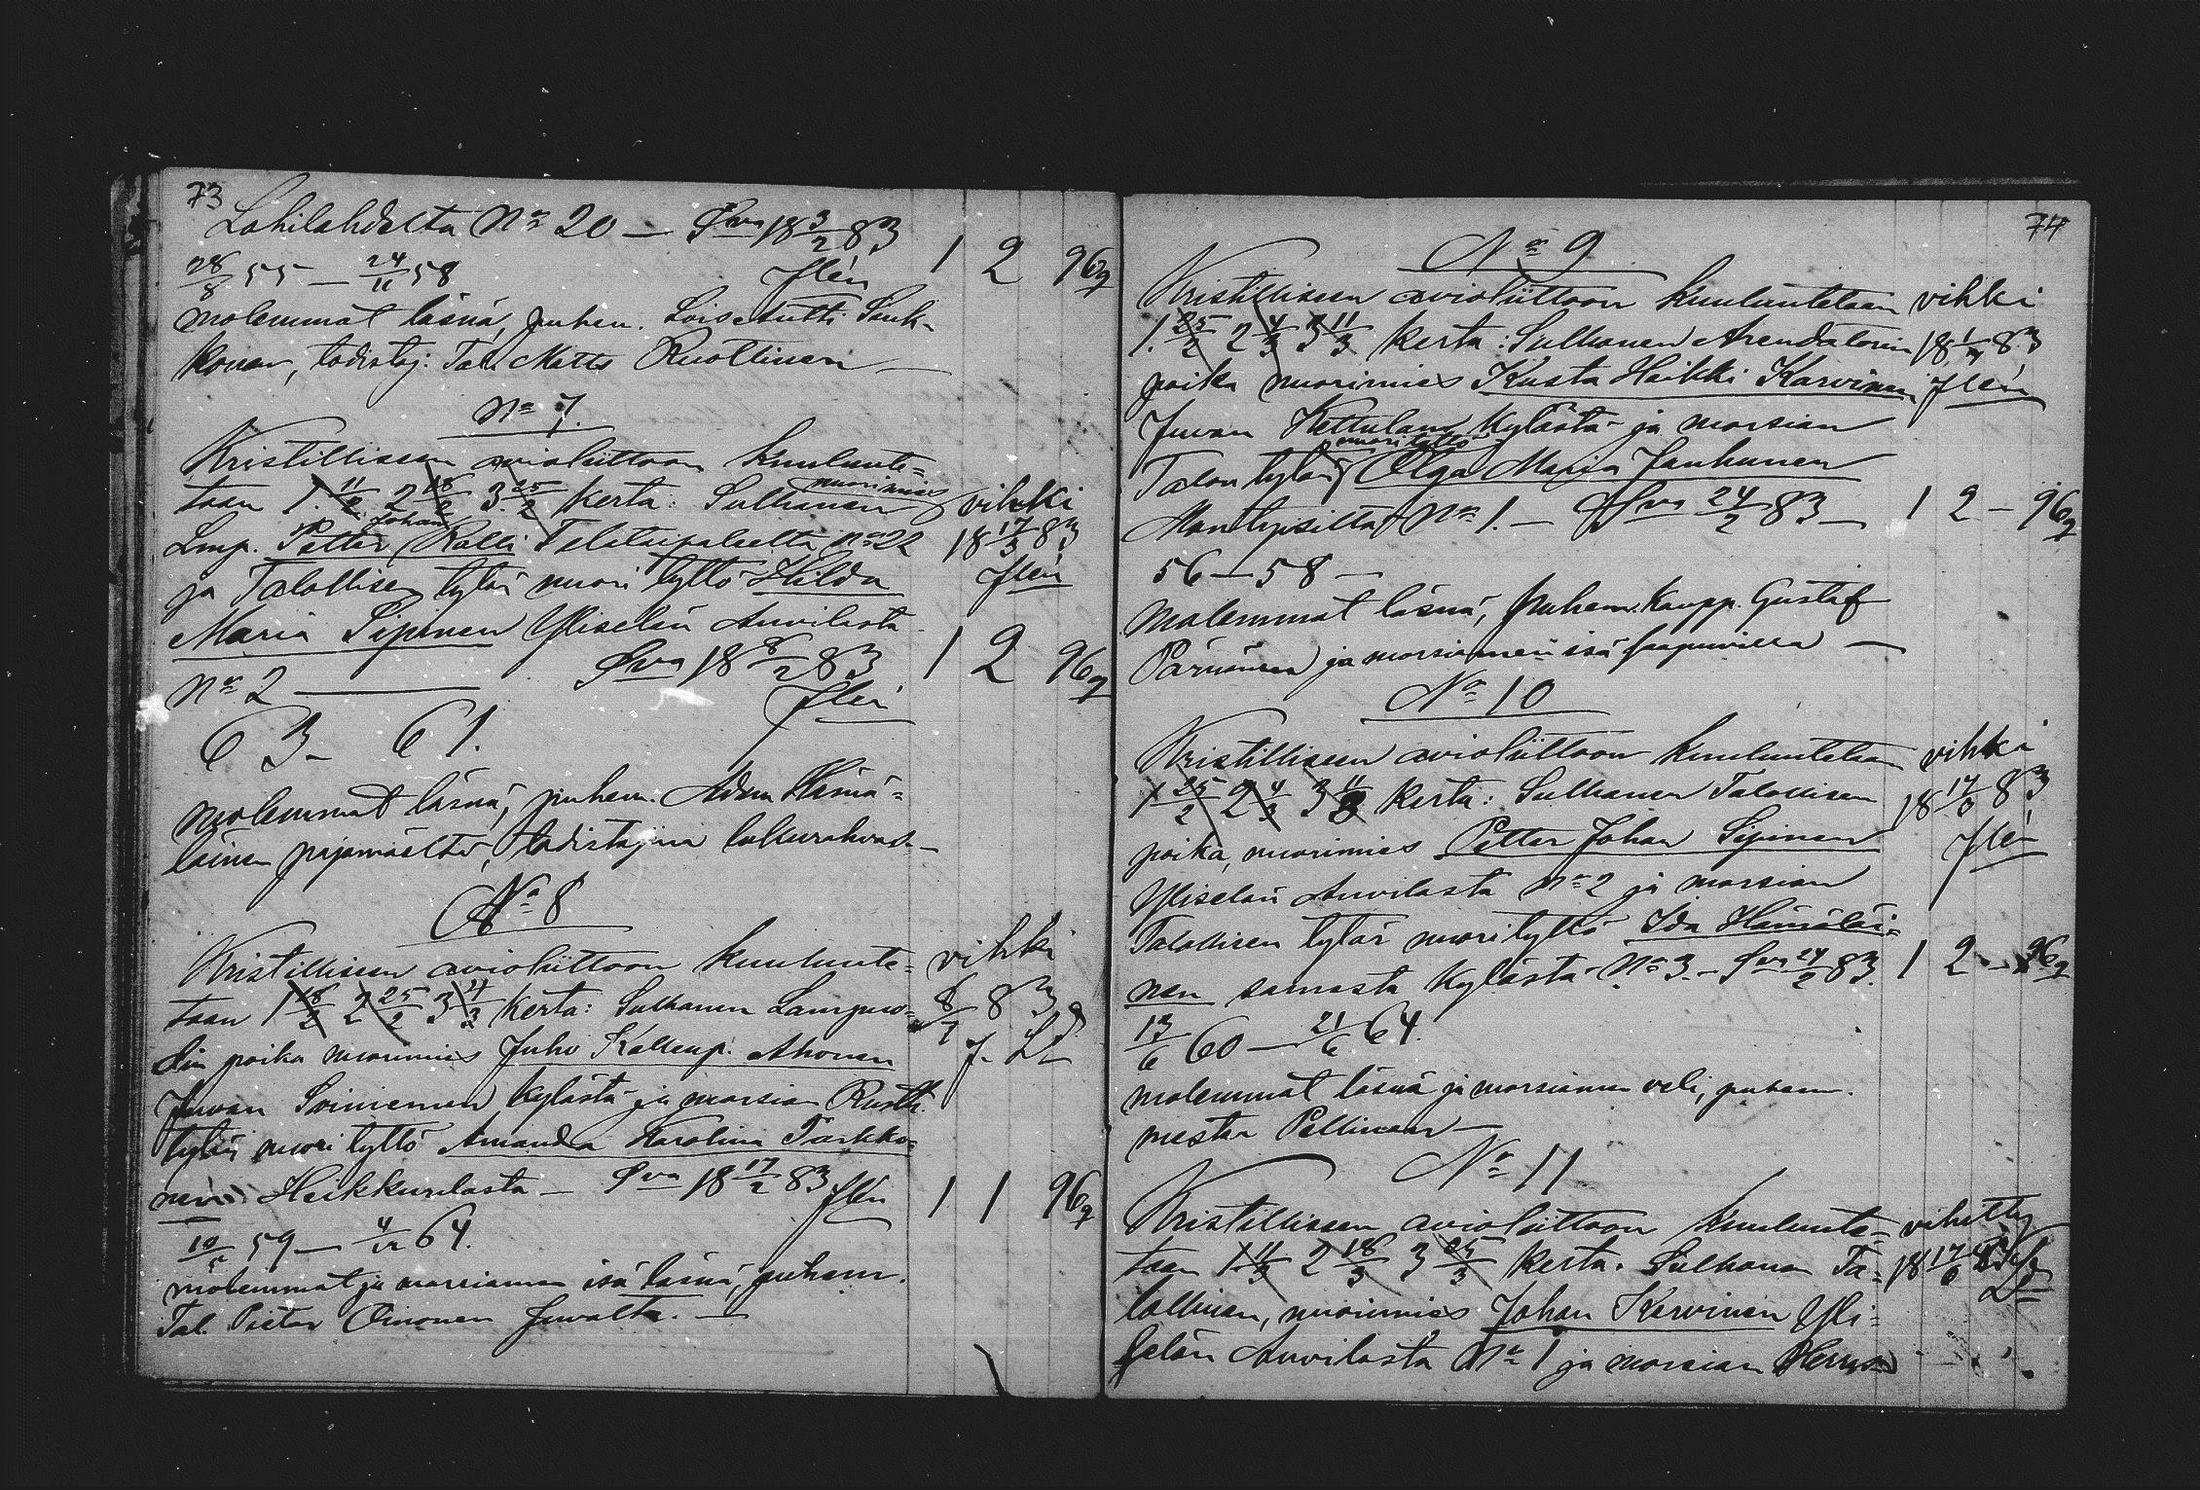 73
Lohilahdelta No 20 — Sva 18 3/2 83
28/8 55 — 24/11 58 flén 1 2 96
molemmat läsnä, puhem. Loisetutti Sink-
konen, todistaj. Tal. Matts Ruottinen —
No 7.
Kristilliseen avioliittoon kuulute=
taan 1. 11/2 2 18/2 3. 25/2 kerta: Sulhanen nuorimies vihki
Lmp. Petter Johan Kolli Telataipaleelta No 22 18 17/3 83
ja Talollisen tytär nuori tyttö Hilda flén
Maria Sipinen Yliselän Auvilasta
No 2 — Sva 18 8/2 83 1 2 96
flén
63 — 61.
molemmat läsnä, puhem. Adam Hämä=
läinen pajamäeltä, todistajina
No 8
Kristilliseen avioliittoon kuulute= vihki
taan 1 18/2 2 25/2 3 4/3 kerta: Sulhanen Lampuo= 8/7 83
din poika nuorimies Juho Kallenp. Ahonen
Juvan Soiniemen kylästä ja morsian Rustit.
tytär nuori tyttö Amanda Karolina Tarkko=
nen Heikkurilasta — Sva 18 17/2 83 flén 1 1 96
10/5 59 — 4/12 64.
molemmat ja morsiamen isä läsnä, puhem.
Tal. Pietar Oinonen Juvalta. —
74
No 9
Kristilliseen avioliittoon kuulutetaan vihki
1. 25/2 2 4/3 3 11/3 kerta: Sulhanen Arendatorin 18 1/4 83
poika nuorimies Kusta Heikki Karvinen flén
Juvan Kettulan kylästä ja morsian
Talon tytär nuori tyttö Olga Maria Jauhunen
No 1. — Sva 24/2 83 — 1 2 — 96
56 — 58 —
Molemmat läsnä, puhem. Kaupp. Gustaf
Pärnänen ja morsiamen isä saapuvilla —
No 10
Kristilliseen avioliittoon kuulutetaan vihki
1 25/2 2 4/3 3 11/3 kerta: Sulhanen Talollisen 18 17/6 83
poika, nuorimies Petter Johan Sipinen flén
Yliselän Auvilasta No 2 ja morsian
Talollisen tytär nuori tyttö Ida Hämäläi=
nen samasta kylästä No 3. — Sva 24/2 83. 1 2 — 96
13/6 60 — 21/6 64.
molemmat läsnä ja morsiamen veli, puhem.
mestar Pellinen —
No 11
Kristilliseen avioliittoon kuulute= vihitty
taan 1. 11/3 2 18/3 3 25/3 kerta. Sulhanen Ta= 18 17/6 83
lollinen, nuorimies Johan Karvinen Yli=
selän Auvilasta No 1 ja morsian